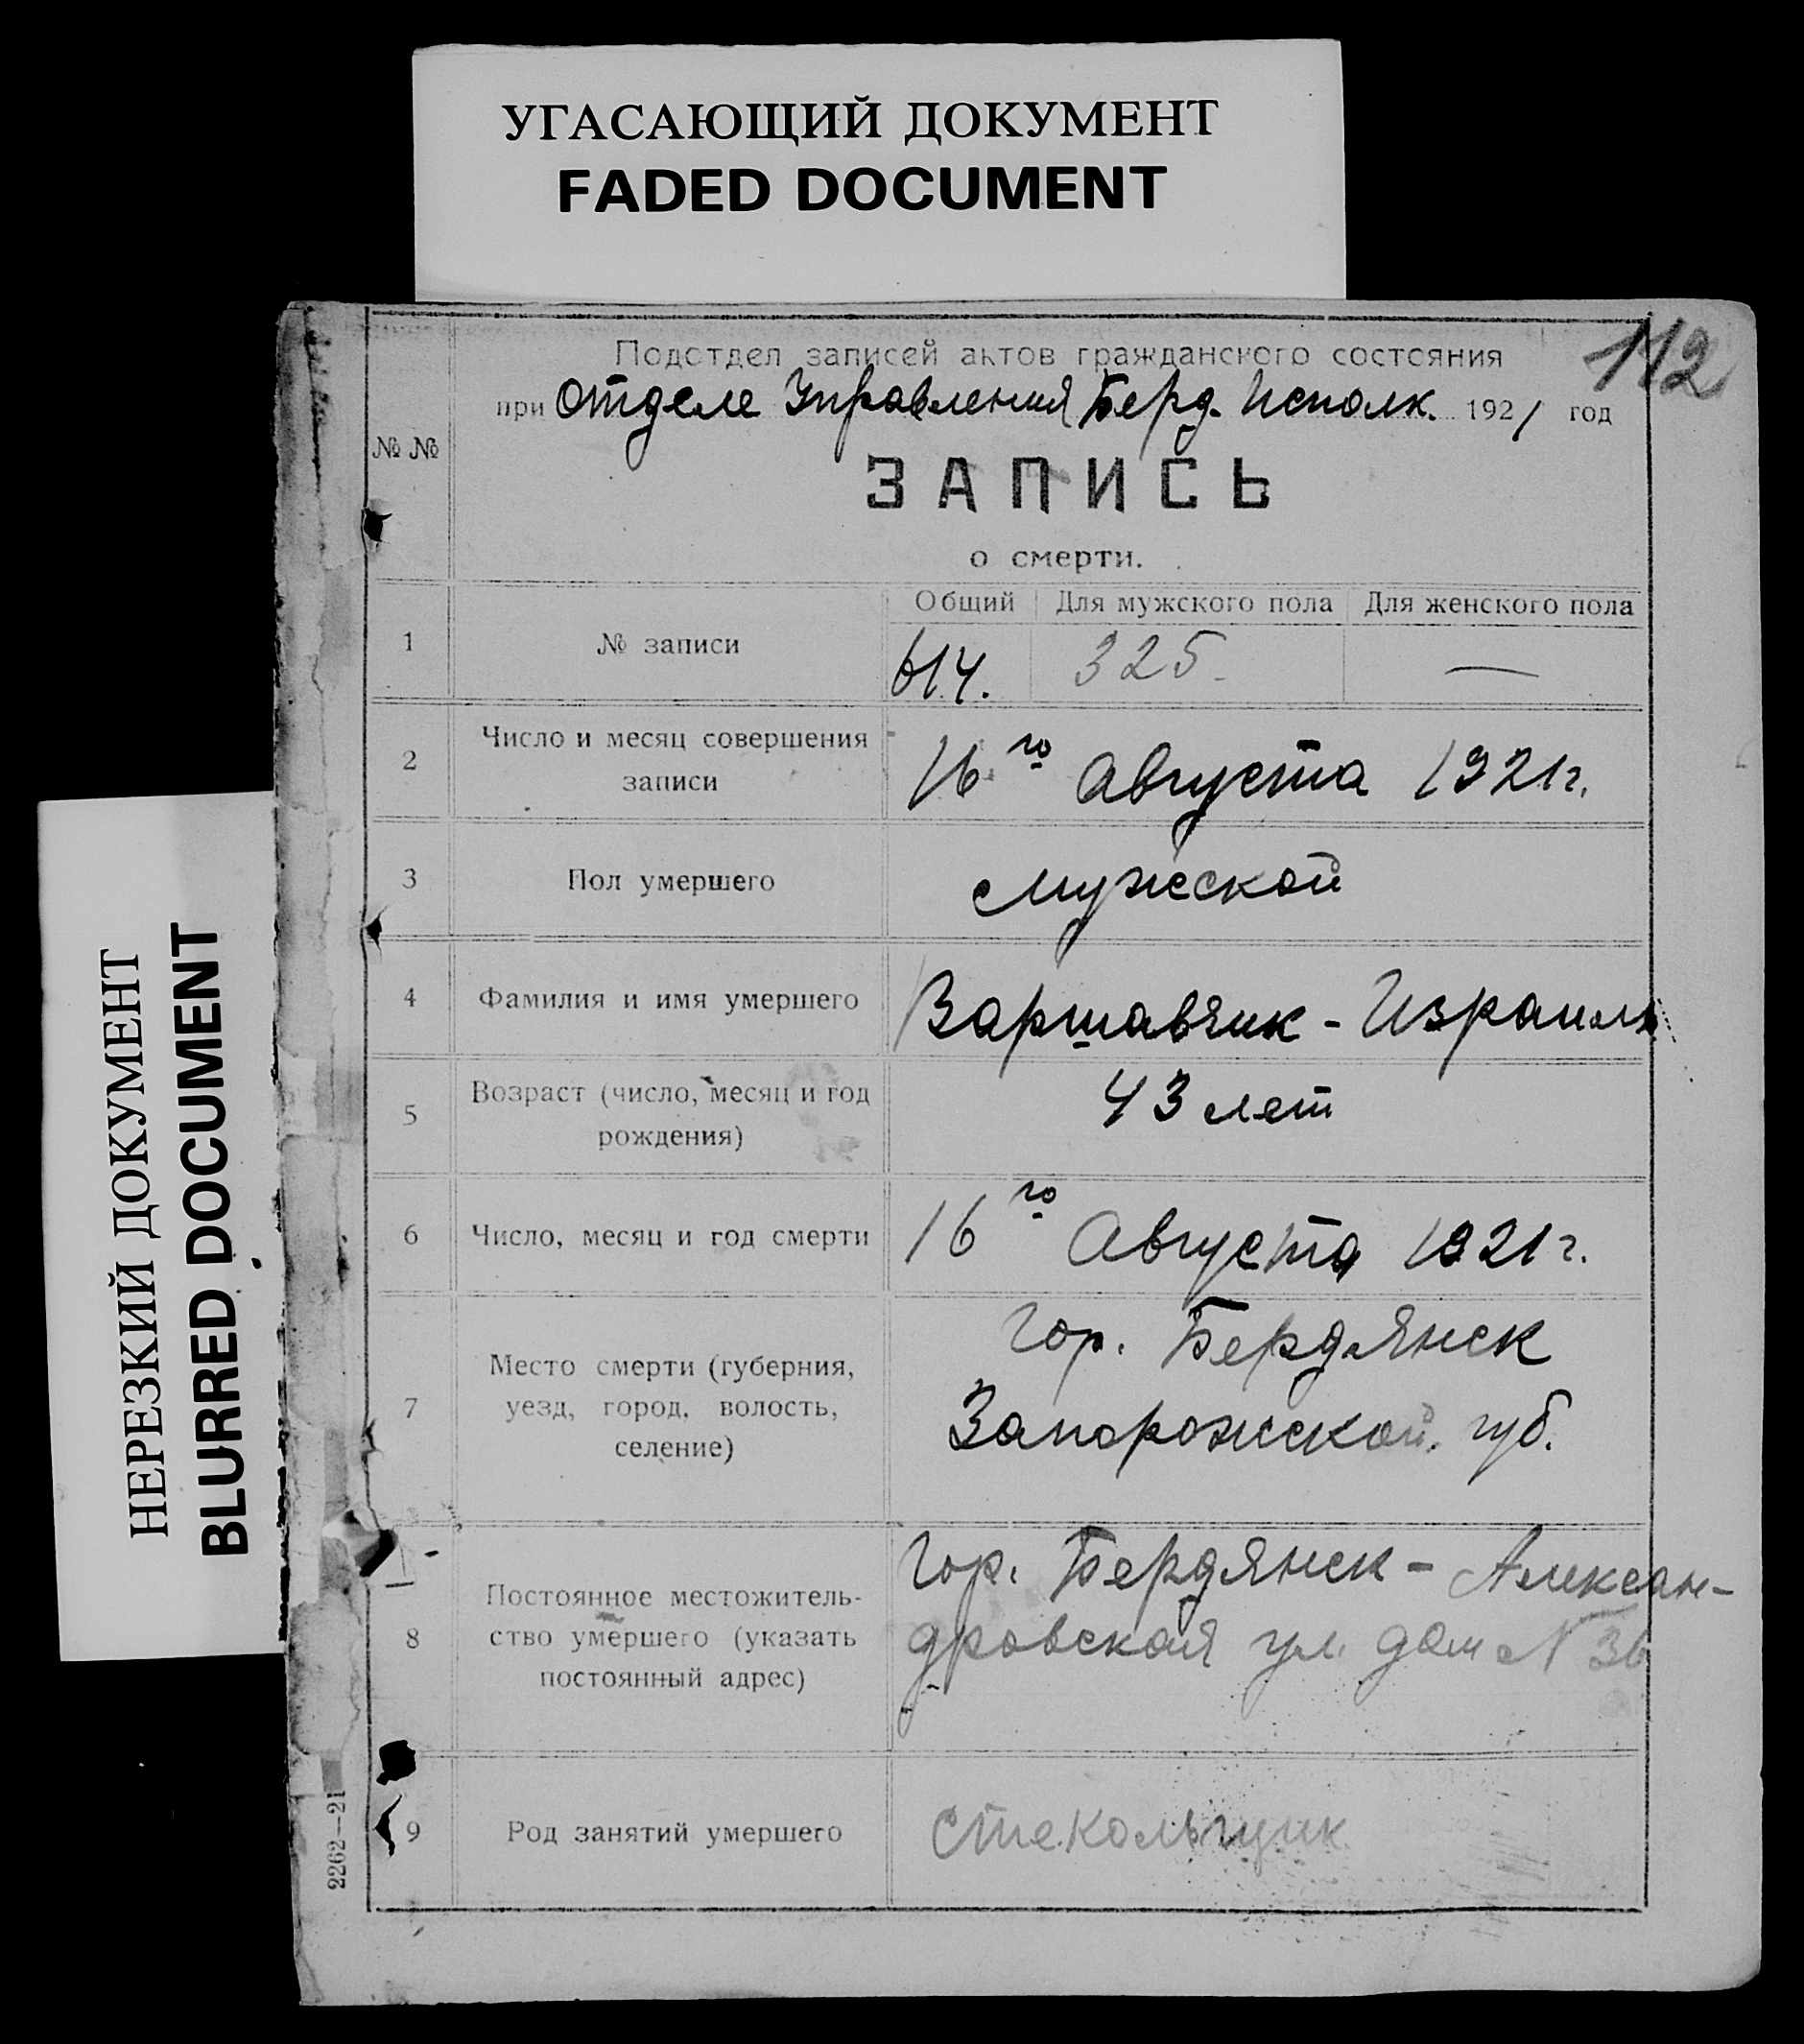 УГАСАЮЩИЙ ДОКУМЕНТ
FADED DOCUMENT
НЕРЕЗКИЙ ДОКУМЕНТ
BLURRED DOCUMENT
112
Подотдел записей актов гражданского состояния
при Отделе Управления Берд. Исполк. 1921 год
№ №
ЗАПИСЬ
о смерти.
Общий Для мужского пола Для женского пола
1 № записи 614. 325. —
2 Число и месяц совершения
записи
16го Августа 1921г.
3 Пол умершего мужской
4 Фамилия и имя умершего Варшавчик - Израиль
5 Возраст (число, месяц и год
рождения)
43 лет
6 Число, месяц и год смерти 16го Августа 1921г.
7 Место смерти (губерния,
уезд, город, волость,
селение)
Гор. Бердянск
Запорожской губ.
8 Постоянное местожитель-
ство умершего (указать
постоянный адрес)
Гор. Бердянск - Алексан-
дровская ул. дом N 36
9 Род занятий умершего стекольщик
2262—21